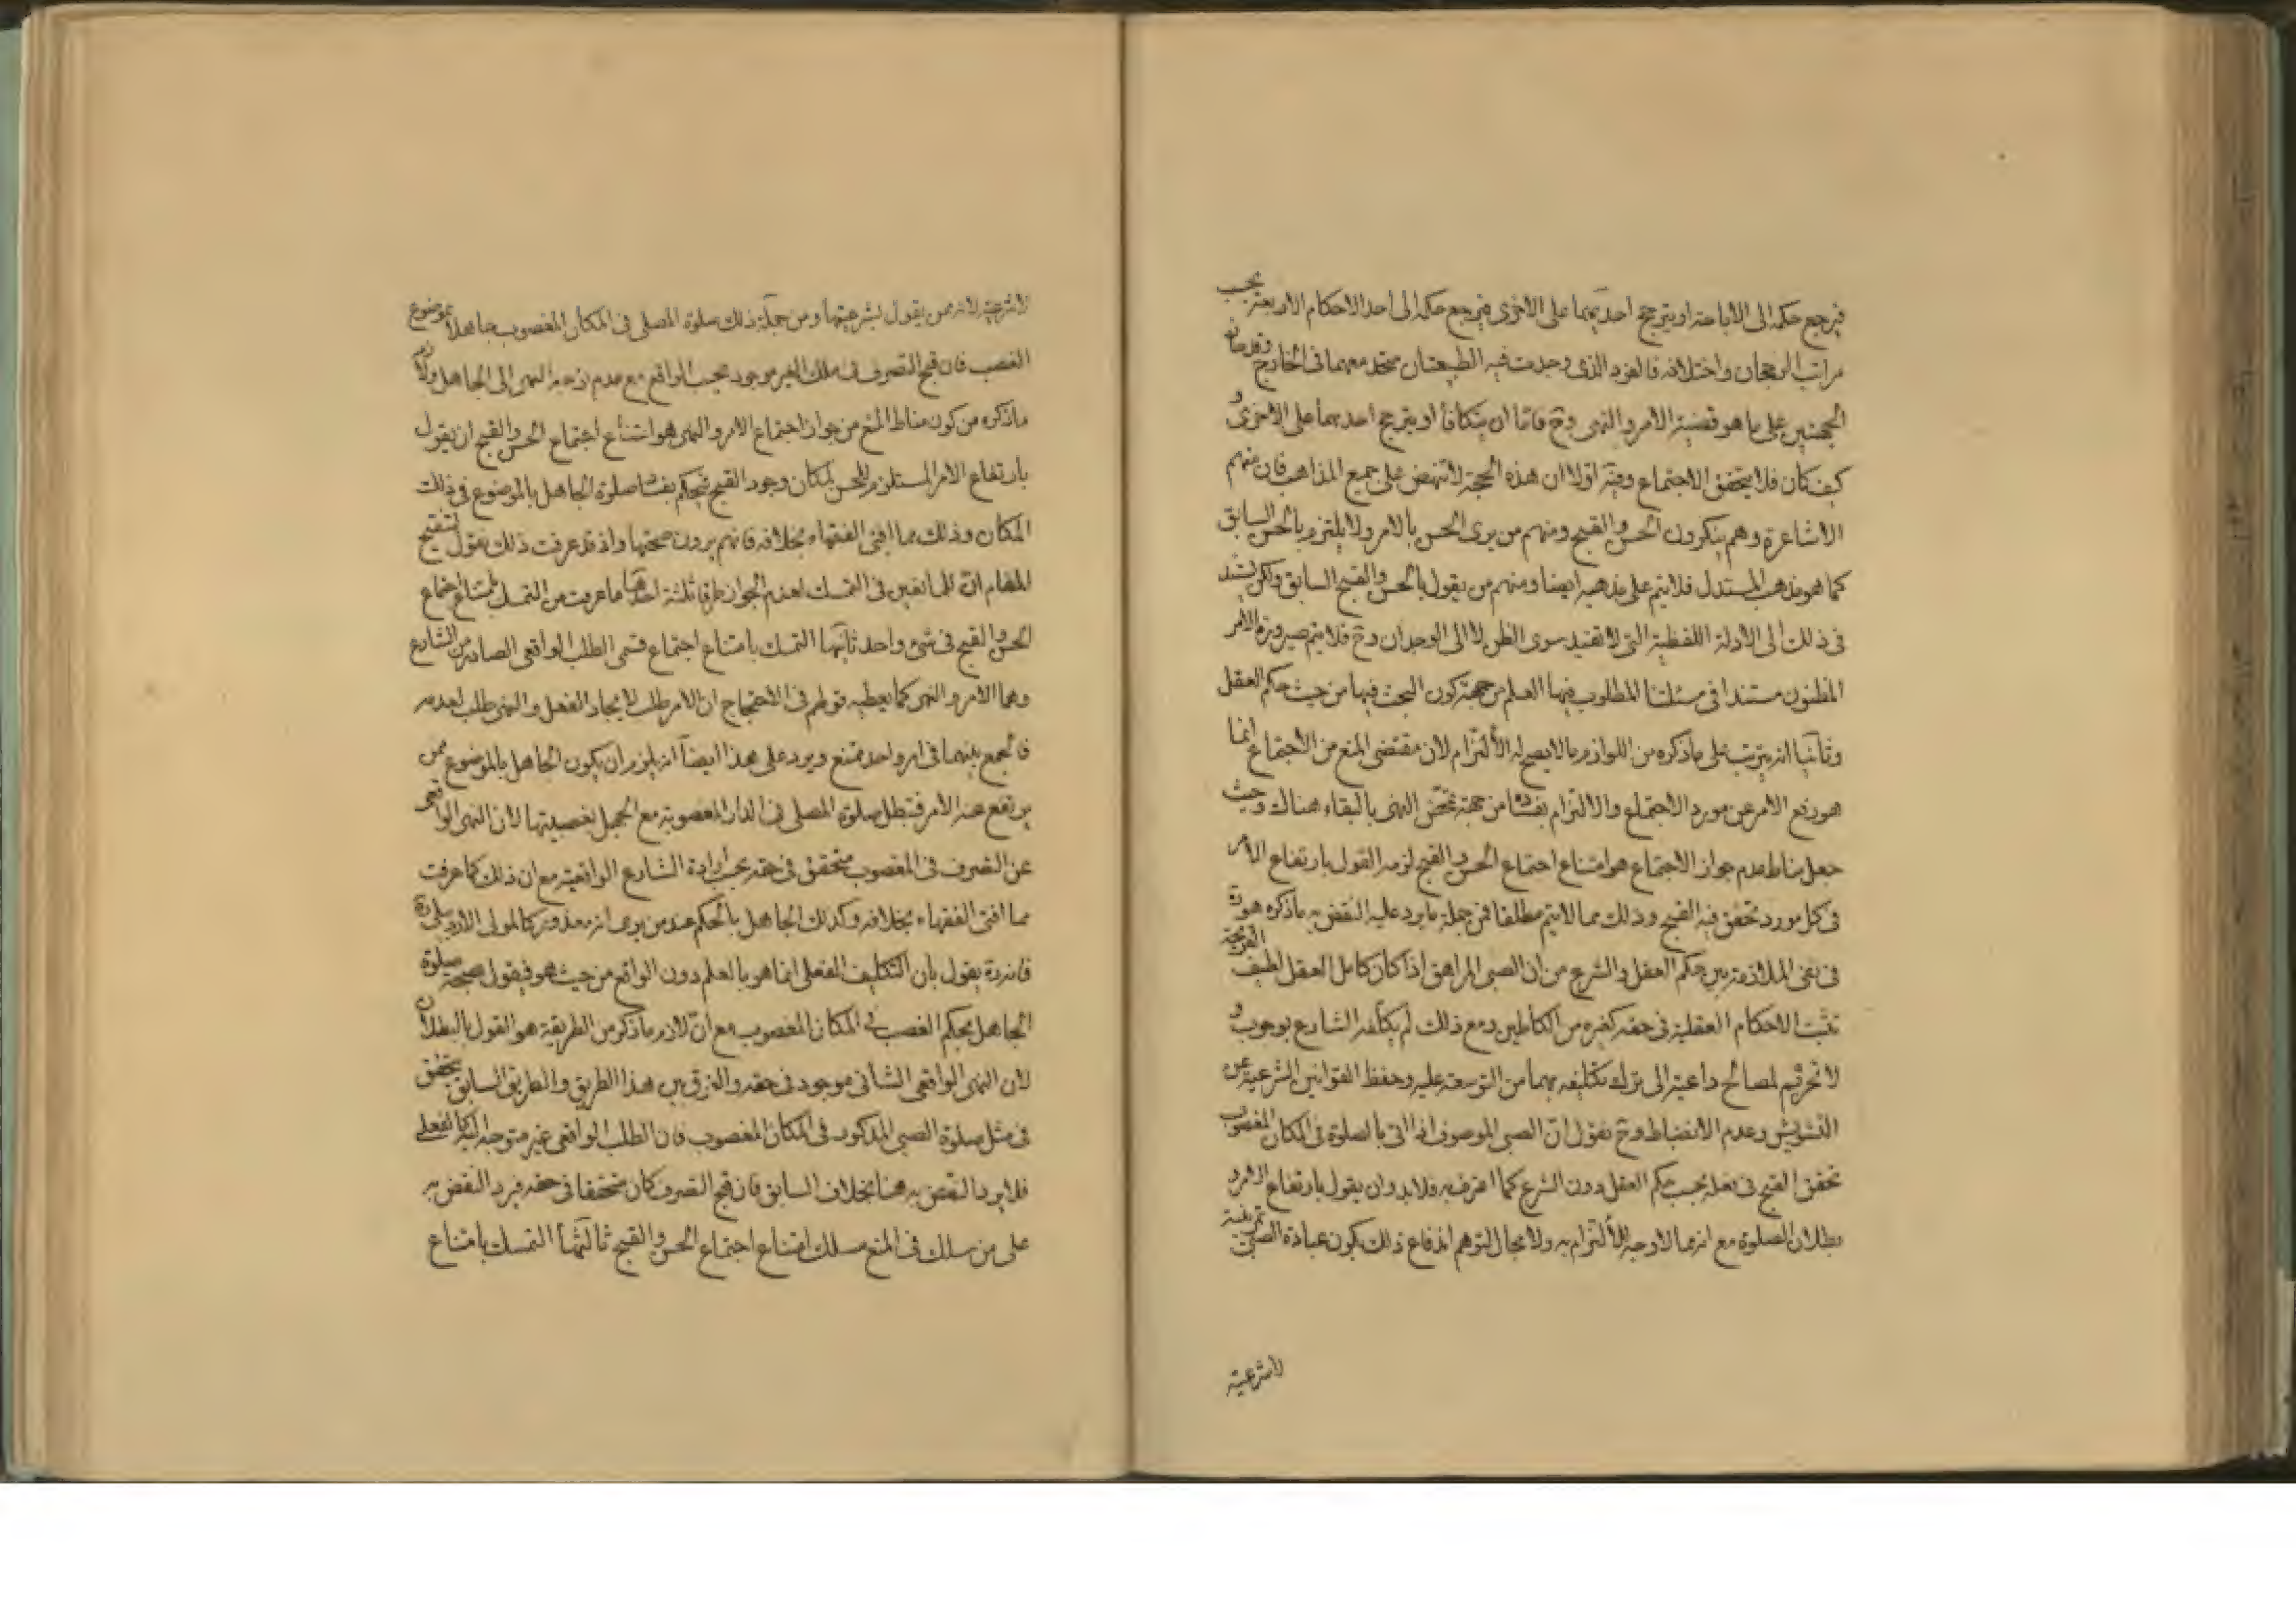 فيرجع حكمه الى الاباحة او يترجح احديهما على الاخرى فيرجع حكمه الى احد الاحكام الاربعة بحسب
مراتب الرجحان واختلافه فالفرد الذى وجدت فيه الطبيعتان متحد معهما فى الخارج
الجهتين على ما هو قضية الامر والنهى وح فاما ان يتكافأ او يترجح احديهما على الاخرى و
كيف كان فلا يتحقق الاجتماع وفيه اولا ان هذه الحجة لا تنهض على جميع المذاهب فان منهم
الاشاعرة وهم ينكرون الحسن والقبح ومنهم من يرى الحسن بالامر ولا يلتزم بالحسن السابق
كما هو مذهب المستدل فلا يتم على مذهبه ايضا ومنهم من يقول بالحسن والقبح السابق ولكن يستند
فى ذلك الى الادلة اللفظية التى لا تفيد سوى الظن لا الى الوجدان وح فلا يتم صيرورة الامر
المظنون مستندا فى مسئلتنا المطلوب فيها العلم من جهة كون البحث فيها من حيث حكم العقل
وثانيا انه يترتب على ما ذكره من اللوازم ما لا يصح له الألتزام لان مقتضى المنع من الاجتماع انما
هو رفع الامر عن مورد الاجتماع والالتزام بفساده من جهة تمحّض النهى بالبقاء هناك وحيث
جعل مناط عدم جواز الاجتماع هو امتناع اجتماع الحسن والقبح لزمه القول بارتفاع الامر
فى كل مورد تحقق فيه القبح وذلك مما لا يتم مطلقا فمن جملة ما يرد عليه النقض به ما ذكره هو ره
فى نفى الملازمة بين حكم العقل والشرع من ان الصبى المراهق اذا كان كامل العقل لطيف القريحة
تثبت الاحكام العقلية فى حقه كغيره من الكاملين ومع ذلك لم يكلفه الشارع بوجوب و
لا تحريم لمصالح داعية الى ترك تكليفه بهما من التوسعة عليه وحفظ القوانين الشرعية عن
التشويش وعدم الانضباط وح نقول انّ الصبى الموصوف اذا اتى بالصلوة فى المكان المغصوب
تحقق القبح فى فعله بحسب حكم العقل دون الشرع كما اعترف به فلابد وان يقول بارتفاع الامر و
بطلان الصلوة مع انه مما لا وجه للألتزام به ولا مجال لتوهم اندفاع ذلك بكون عبادة الصبىّ تمرينية
لاشرعية
لاشرعية لانه ممن يقول بشرعيتها ومن جملة ذلك صلوة المصلى فى المكان المغصوب جاهلا بموضوع
الغصب فان قبح التصرف فى ملك الغير موجود بحسب الواقع مع عدم توجه النهى الى الجاهل ولازم
ما ذكره من كون مناط المنع من جواز اجتماع الامر والنهى هو امتناع اجتماع الحسن والقبح ان يقول
بارتفاع الامر المستلزم للحسن لمكان وجود القبح فيحكم بفساد صلوة الجاهل بالموضوع فى ذلك
المكان وذلك مما افتى الفقهاء بخلافه فانهم يرون صحتها واذ قد عرفت ذلك نقول لتنقيح
المقام انّ للمانعين فى التمسك لعدم الجواز طرقا ثلثة احدها ما عرفت من التمسك بامتناع اجتماع
الحسن والقبح فى شئ واحد ثانيها التمسك بامتناع اجتماع قسمى الطلب الواقعى الصادر من الشارع
وهما الامر والنهى كما يعطيه قولهم فى الاحتجاج ان الامر طلب لايجاد الفعل والنهى طلب لعدمه
فالجمع بينهما فى امر واحد ممتنع ويرد على هذا ايضاً انه يلزم ان يكون الجاهل بالموضوع ممن
يرتفع عنه الامر فتبطل صلوة المصلى فى الدار المغصوبة مع الجهل بغصبيتها لان النهى الواقعى
عن التصرف فى المغصوب متحقق فى حقه بحسب ارادة الشارع الواقعية مع ان ذلك كما عرفت
مما افتى الفقهاء بخلافه وكذلك الجاهل بالحكم عند من يرى انه معذور كالمولى الاردبيلى ره
فانه ره يقول بان التكليف الفعلى انما هو بالعلم دون الواقع من حيث هو فيقول بصحة صلوة
الجاهل بحكم الغصب فى المكان المغصوب مع انّ لازم ما ذكر من الطريقة هو القول بالبطلان
لان النهى الواقعى الشانى موجود فى حقه والفرق بين هذا الطريق والطريق السابق يتحقق
فى مثل صلوة الصبى المذكور فى المكان المغصوب فان الطلب الواقعى غير متوجه اليه كالفعلى
فلا يرد النقض به هنا بخلاف السابق فان قبح التصرف كان متحققا فى حقه فيرد النقض به
على من سلك فى المنع مسلك امتناع اجتماع الحسن والقبح ثالثها التمسك بامتناع